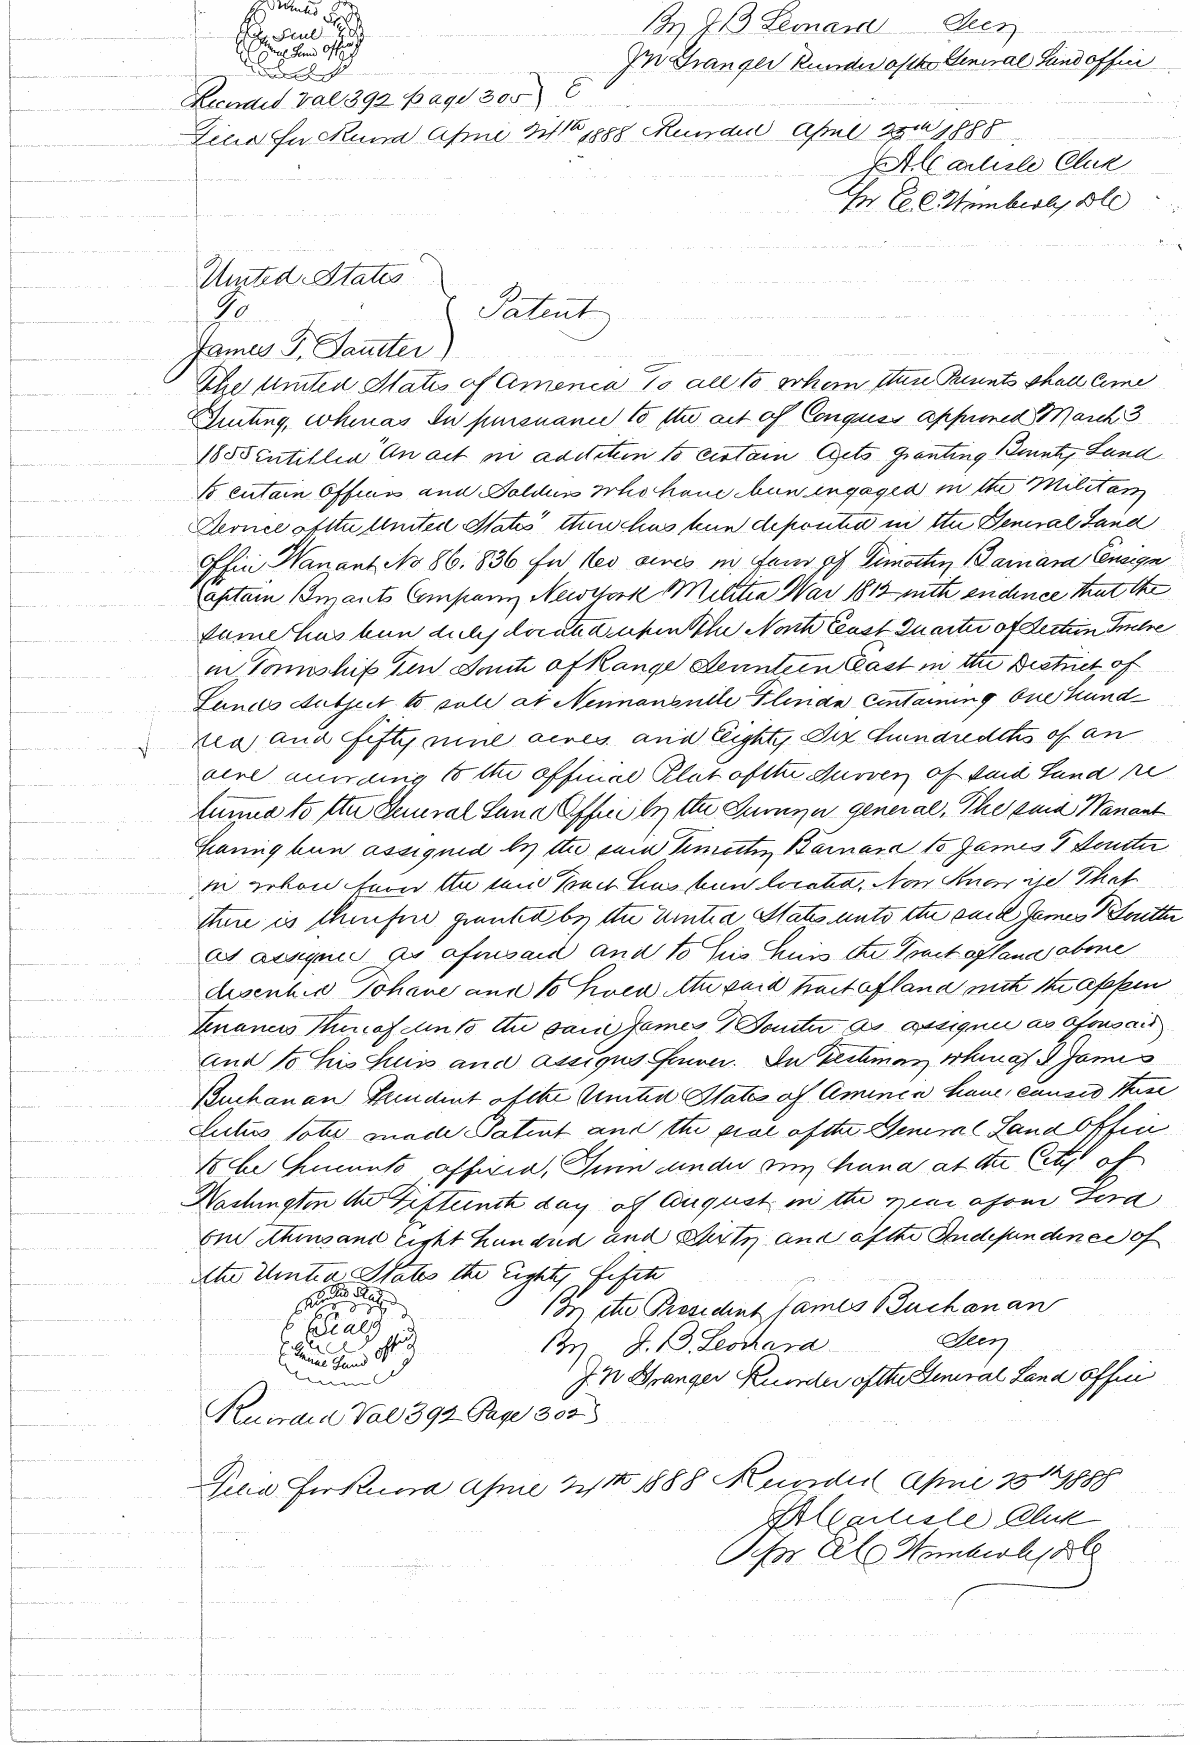 United States
Seal
General Land office
By J B Leonard Secy
J N Granger Recorder of the General Land office
Recorded Val 392 page 305
Filed for Record April 24th 1888 Recorded April 25th 1888
J A Carlisle Clerk
Per E. C. Wimberly D C
United States
To
Patent
James T, Soutter
The United States of America To all to whom these Presents shall Come
Greeting, whereas In pursuance to the act of Congress approved March 3
1855 entitled "An act in addition to certain Acts granting Bounty Land
to certain Officers and Soldiers who have been engaged in the Military
Service of the United States" there has been deposited in the General Land
Office Warrant No 86,836 for 160 acres in favor of Timothy Barnard Ensign
Captain Bryants Company New York Militia War 1812 with evidence that the
same has been duly located upon The North East Quarter of Section Twelve
in Township Ten South of Range Seventeen East in the District of
Lands subject to sale at Newnansville Florida containing One hund
red and fifty nine acres and Eighty Six hundredths of an
acre according to the official Plat of the Survey of said Land re
turned to the General Land Office by the Surveyor general, The said Warrant
having been assigned by the said Timothy Barnard to James T Soutter
in whose favor the said Tract has been located, Now Know ye That
there is therefore granted by the United States unto the said James T Soutter
as assignee as aforesaid and to his heirs the Tract of land above
described To have and to hold the said tract of land with the appur
tenances thereof unto the said James T Soutter as assignee as aforesaid
and to his heirs and assigns forever. In Testimony whereof I James
Buchanan President of the United States of America have caused these
letters to be made Patent and the seal of the General Land Office
to be hereunto affixed, Given under my hand at the City of
Washington the Fifteenth day of August in the year of our Lord
one thousand Eight hundred and Sixty and of the Independence of
the United States the Eighty fifth
United States
Seal
General Land office
By the President James Buchanan
By J. B. Leonard Secy
J N Granger Recorder of the General Land office
Recorded Val 392 Page 302
Filed for Record April 24th 1888 Recorded April 25th 1888
J A Carlisle Clerk
Per E C Wimberly D C